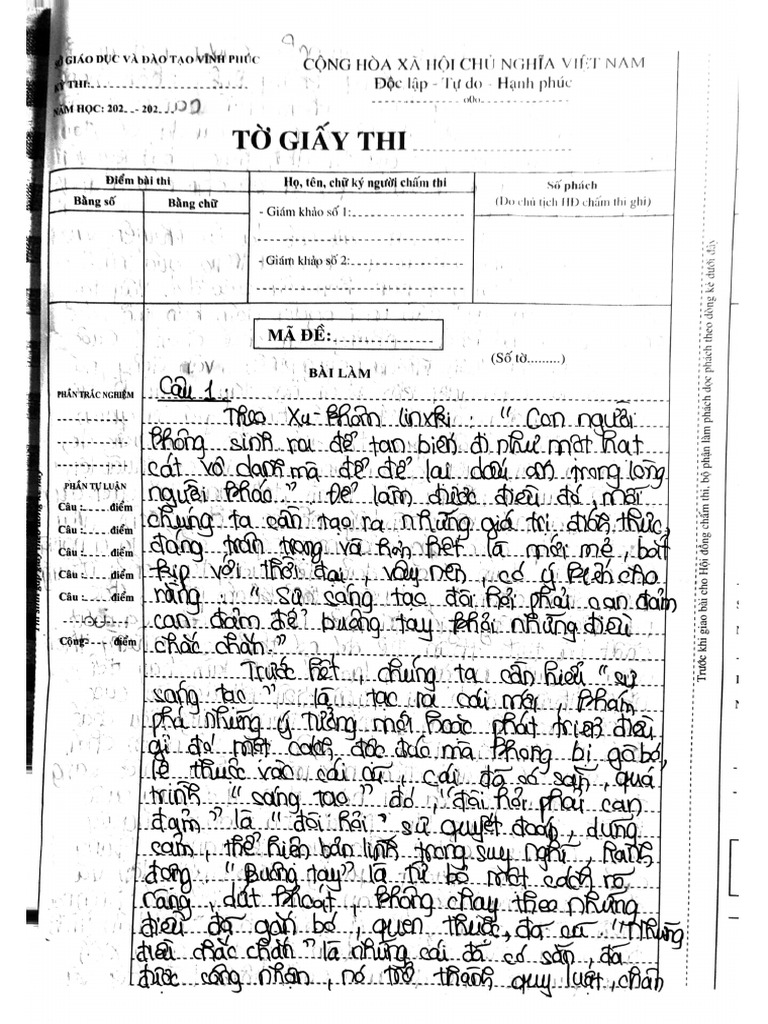 GIÁO DỤC VÀ ĐÀO TẠO VĨNH PHÚC
CỘNG HÒA XÃ HỘI CHỦ NGHĨA VIỆT NAM
KỲ THI:
Độc lập - Tự do - Hạnh phúc
NĂM HỌC: 202 - 202
TỜ GIẤY THI
Điểm bài thi
Họ, tên, chữ ký người chấm thi
Số phách
(Do chủ tịch HĐ chấm thi ghi)
Bằng số
Bằng chữ
- Giám khảo số 1:
- Giám khảo số 2:
MÃ ĐỀ:
(Số tờ.........)
BÀI LÀM
PHẦN TRẮC NGHIỆM
PHẦN TỰ LUẬN
Câu : ...... điểm
Câu : ...... điểm
Câu : ...... điểm
Câu : ...... điểm
Câu : ...... điểm
Cộng điểm
Câu 1:
Theo Xu-khôm linxki : " Con người
không sinh ra để tan biến đi như một hạt
cát vô danh mà để để lại dấu ấn trong lòng
người khác " Để làm được điều đó, mỗi
chúng ta cần tạo ra những giá trị đích thực,
đáng trân trọng và hơn hết là mới mẻ, bắt
kịp với thời đại, vậy nên, có ý kiến cho
rằng : " Sự sáng tạo đòi hỏi phải can đảm
can đảm để buông tay khỏi những điều
chắc chắn."
Trước hết, chúng ta cần hiểu " sự
sáng tạo " là tạo ra cái mới, khám
phá những ý tưởng mới, hoặc phát triển điều
gì đó một cách độc đáo mà không bị gò bó,
lệ thuộc vào cái cũ, cái đã có sẵn, quá
trình " sáng tạo " đó, "đòi hỏi phải can
đảm" là " đòi hỏi " sự quyết đoán, dũng
cảm, thể hiện bản lĩnh trong suy nghĩ, hành
động. "Buông tay" là từ bỏ một cách rõ
ràng, dứt khoát, không chạy theo những
điều đã gắn bó, quen thuộc, đã cũ. "Những
điều chắc chắn" là những cái đã có sẵn, đã
được công nhận, nó trở thành quy luật, chân
Trước khi giao bài cho Hội đồng chấm thi, bộ phận làm phách dọc phách theo dòng kẻ dưới đây